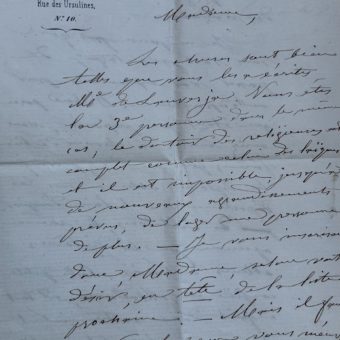 Rue des Ursulines,
N° 10.
Madame,
Les choses sont bien
telles que vous les a écrites
Mme de Vous êtes
la 3e personne dans le même
cas, le dortoir des religieuses est
complet comme celui des
et il est impossible, jusqu'à
de nouveaux agrandissements
prévus, de loger une personne
de plus. — Je vous inscrirai
donc Madame, selon votre
désir, en tête de la liste
prochaine. — Mais il faut
vous